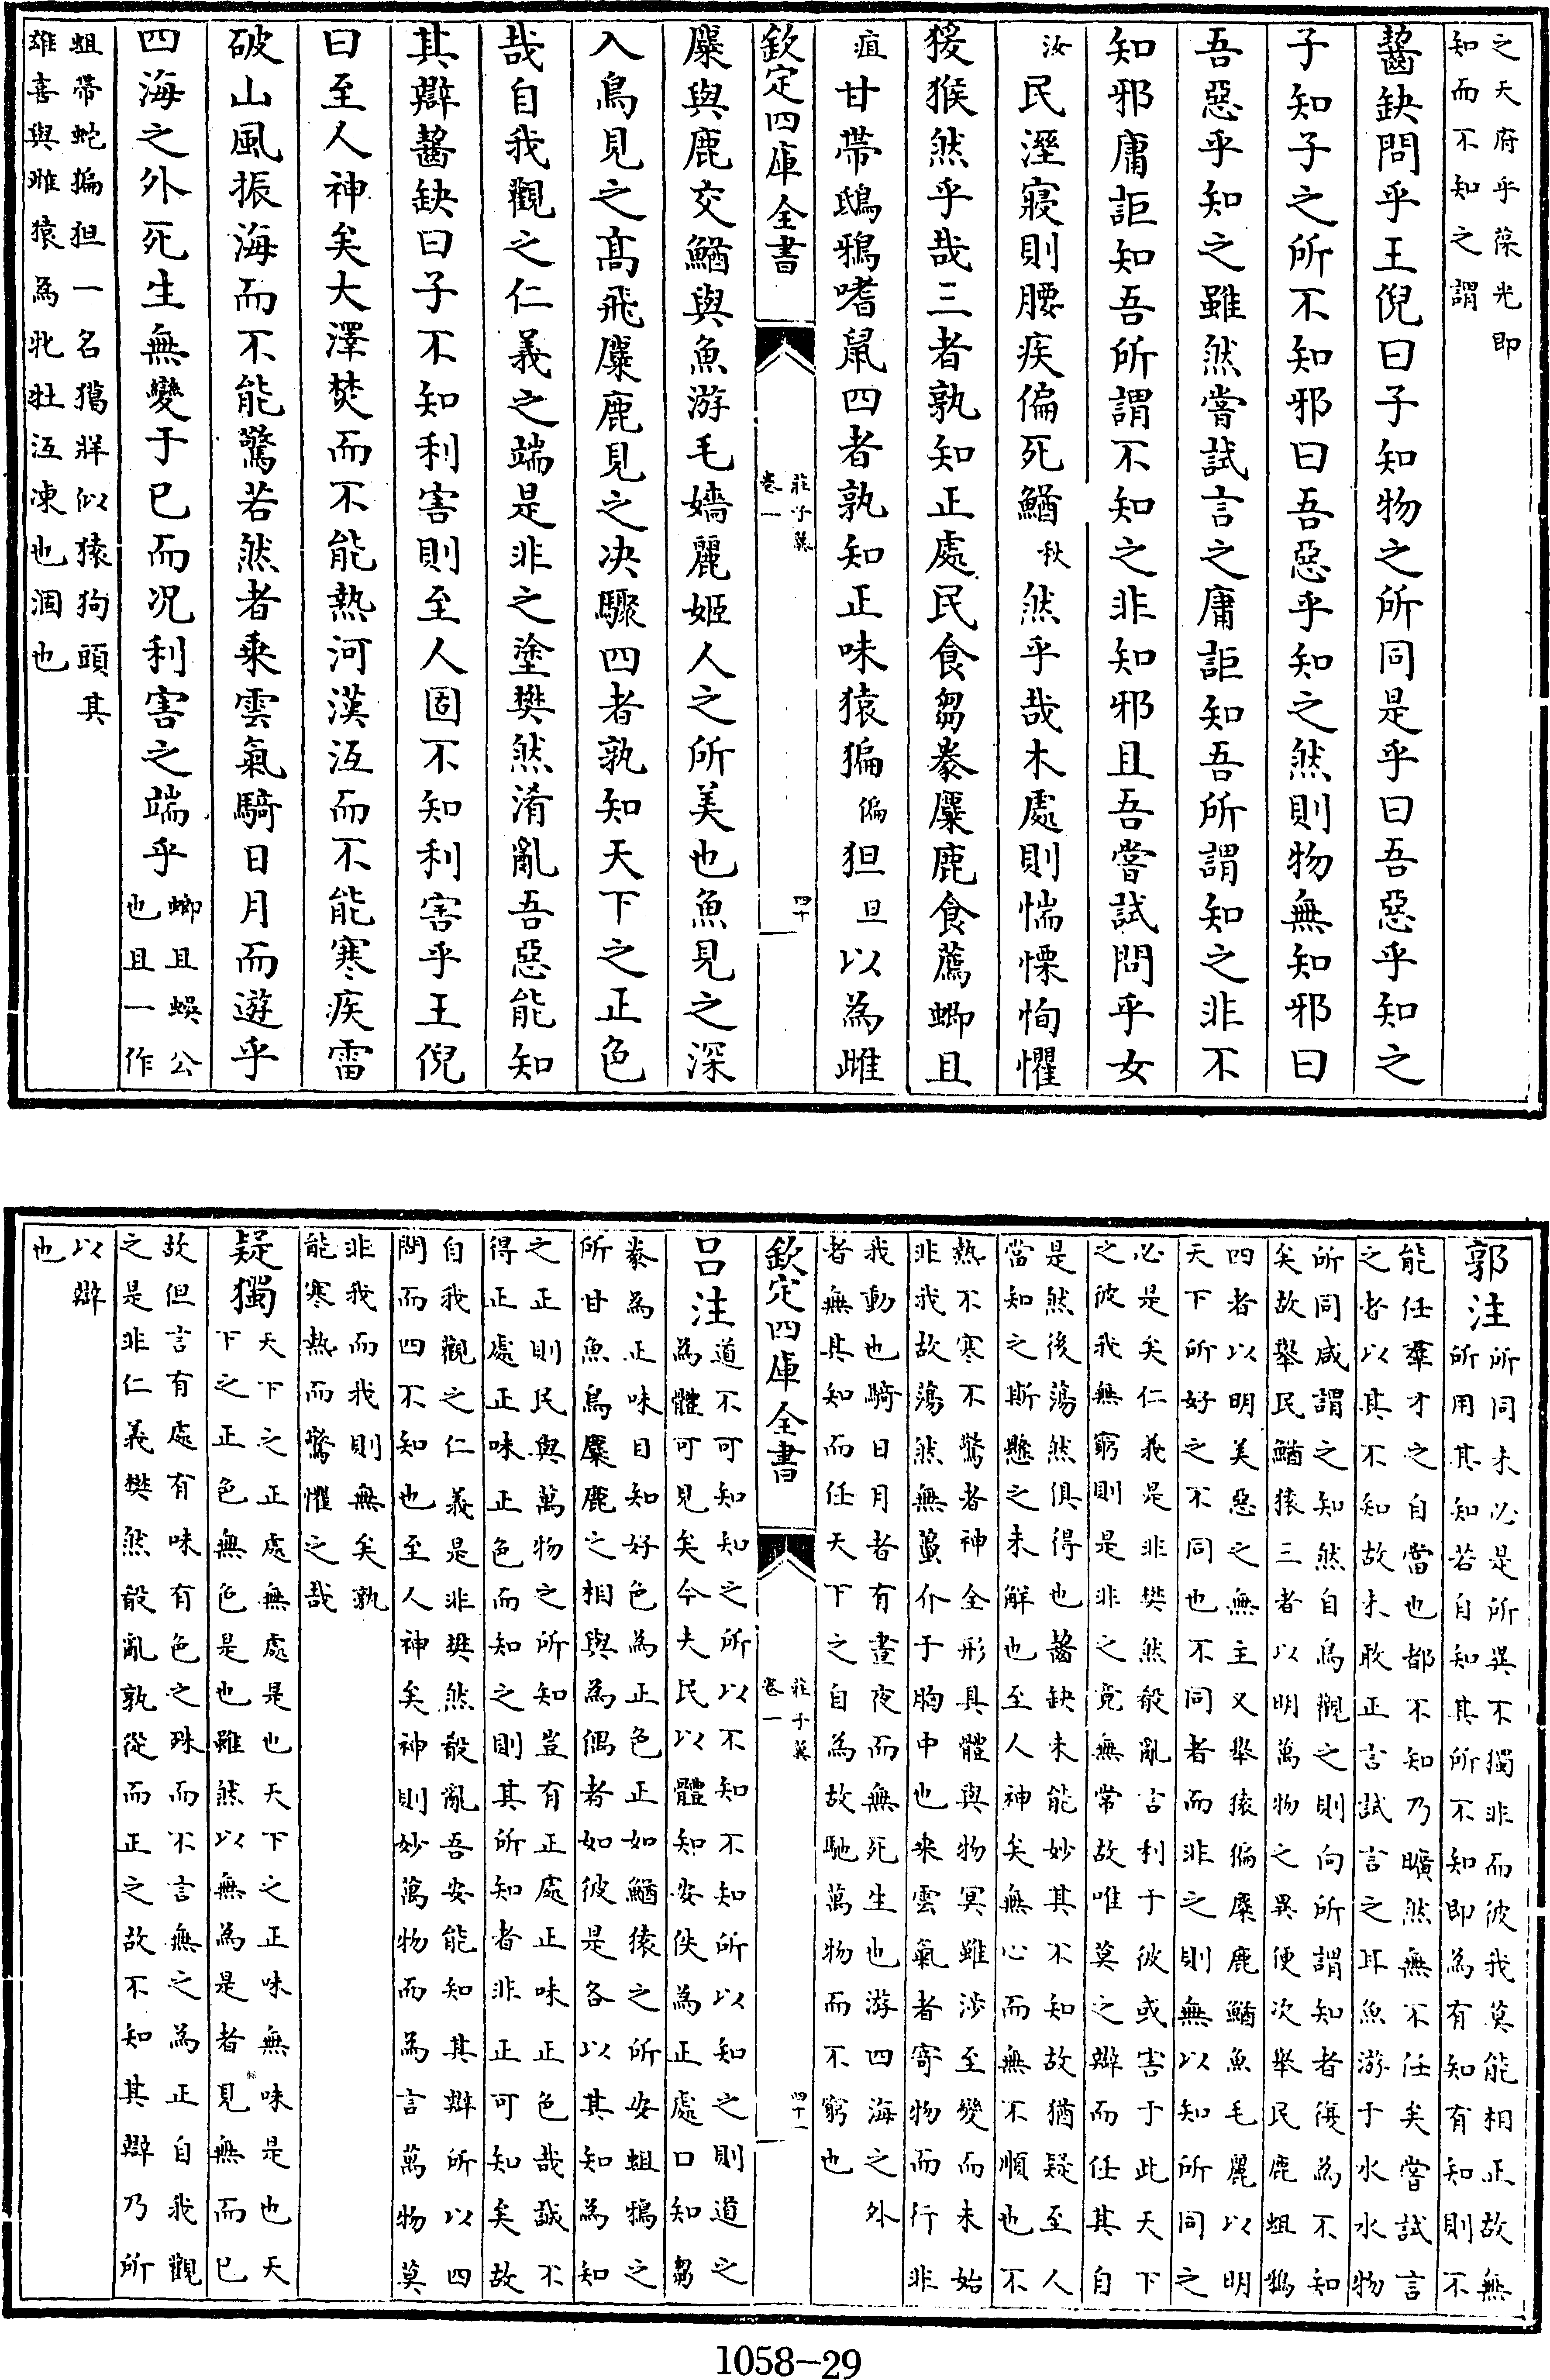 之天府乎葆光即
知而不知之謂
齧缺問乎王倪曰子知物之所同是乎曰吾惡乎知之
子知子之所不知邪曰吾惡乎知之然則物無知邪曰
吾惡乎知之雖然嘗試言之庸詎知吾所謂知之非不
知邪庸詎知吾所謂不知之非知邪且吾嘗試問乎女
汝民溼寢則腰疾偏死鰌秋然乎哉木處則惴慄恂懼
猨猴然乎哉三者孰知正處民食芻豢麋鹿食薦蝍且
疽甘帶鴟鴉嗜鼠四者孰知正味猿猵偏狚旦以為雌
欽定四庫全書
莊子翼
卷一
四十
麋與鹿交鰌與魚游毛嬙麗姬人之所美也魚見之深
入鳥見之高飛麋鹿見之决驟四者孰知天下之正色
哉自我觀之仁義之端是非之塗樊然淆亂吾惡能知
其辯齧缺曰子不知利害則至人固不知利害乎王倪
曰至人神矣大澤焚而不能熱河漢沍而不能寒疾雷
破山風振海而不能驚若然者乘雲氣騎日月而遊乎
四海之外死生無變于已而况利害之端乎
蝍且蜈公
也且一作
蛆帶蛇猵狙一名獦牂似猿狗頭其
雄喜與雌猿為牝牡沍凍也涸也
郭注
所同未必是所異不獨非而彼我莫能相正故無
所用其知若自知其所不知即為有知有知則不
能任羣才之自當也都不知乃曠然無不任矣嘗試言
之者以其不知故未敢正言試言之耳魚游于水水物
所同咸謂之知然自鳥觀之則向所謂知者復為不知
矣故舉民鰌猿三者以明萬物之異便次舉民鹿蛆鴉
四者以明美惡之無主又舉猿猵麋鹿鰌魚毛麗以明
天下所好之不同也不同者而非之則無以知所同之
必是矣仁義是非樊然殽亂言利于彼或害于此天下
之彼我無窮則是非之竟無常故唯莫之辯而任其自
是然後蕩然俱得也齧缺未能妙其不知故猶疑至人
當知之斯懸之未解也至人神矣無心而無不順也不
熱不寒不驚者神全形具體與物冥雖涉至變而未始
非我故蕩然無蠆介于胸中也乘雲氣者寄物而行非
我動也騎日月者有晝夜而無死生也游四海之外
者無其知而任天下之自為故馳萬物而不窮也
欽定四庫全書
莊子翼
卷一
四十一
呂注
道不可知知之所以不知不知所以知之則道之
為體可見矣今夫民以體知安佚為正處口知芻
豢為正味目知好色為正色正如鰌猿之所安蛆鴉之
所甘魚鳥麋鹿之相與為偶者如彼是各以其知為知
之正則民與萬物之所知豈有正處正味正色哉誠不
得正處正味正色而知之則其所知者非正可知矣故
自我觀之仁義是非樊然殽亂吾安能知其辯所以四
問而四不知也至人神矣神則妙萬物而為言萬物莫
非我而我則無矣孰
能寒熱而驚懼之哉
疑獨
天下之正處無處是也天下之正味無味是也天
下之正色無色是也雖然以無為是者見無而已
故但言有處有味有色之殊而不言無之為正自我觀
之是非仁義樊然殽亂孰從而正之故不知其辯乃所
以辯
也
1058-29